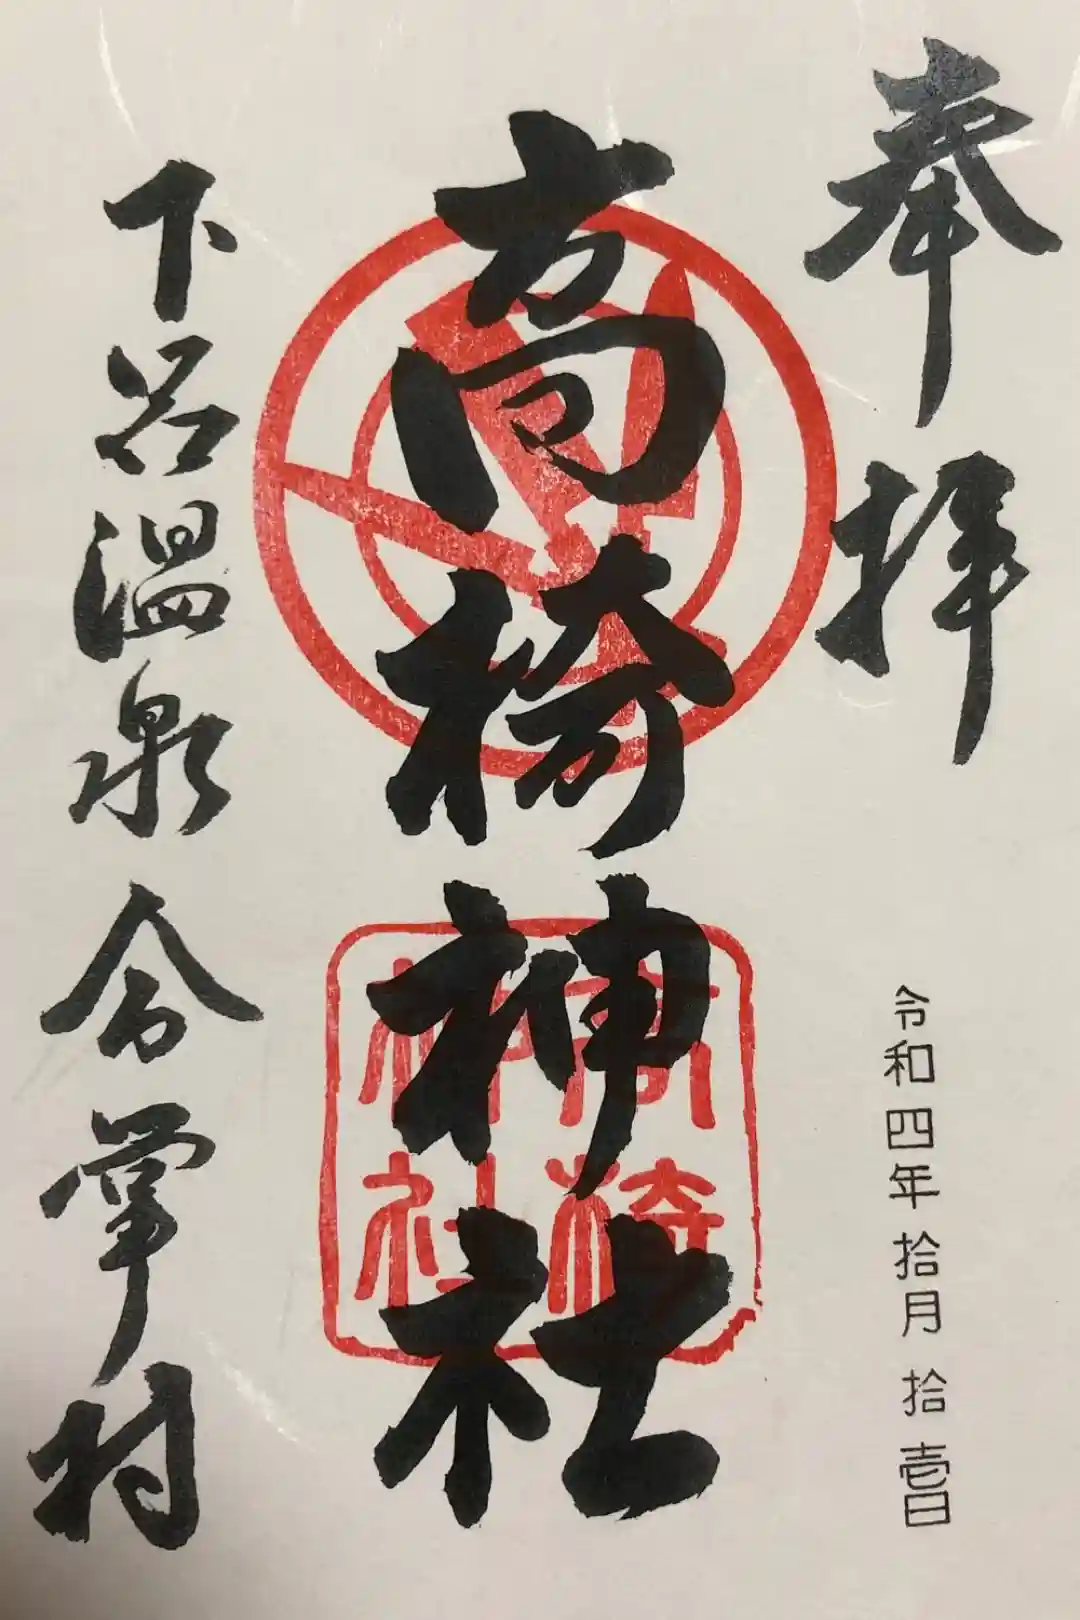 奉拝
令和四年拾月拾壱日
高椅神社
高椅
神社
下呂温泉合掌村